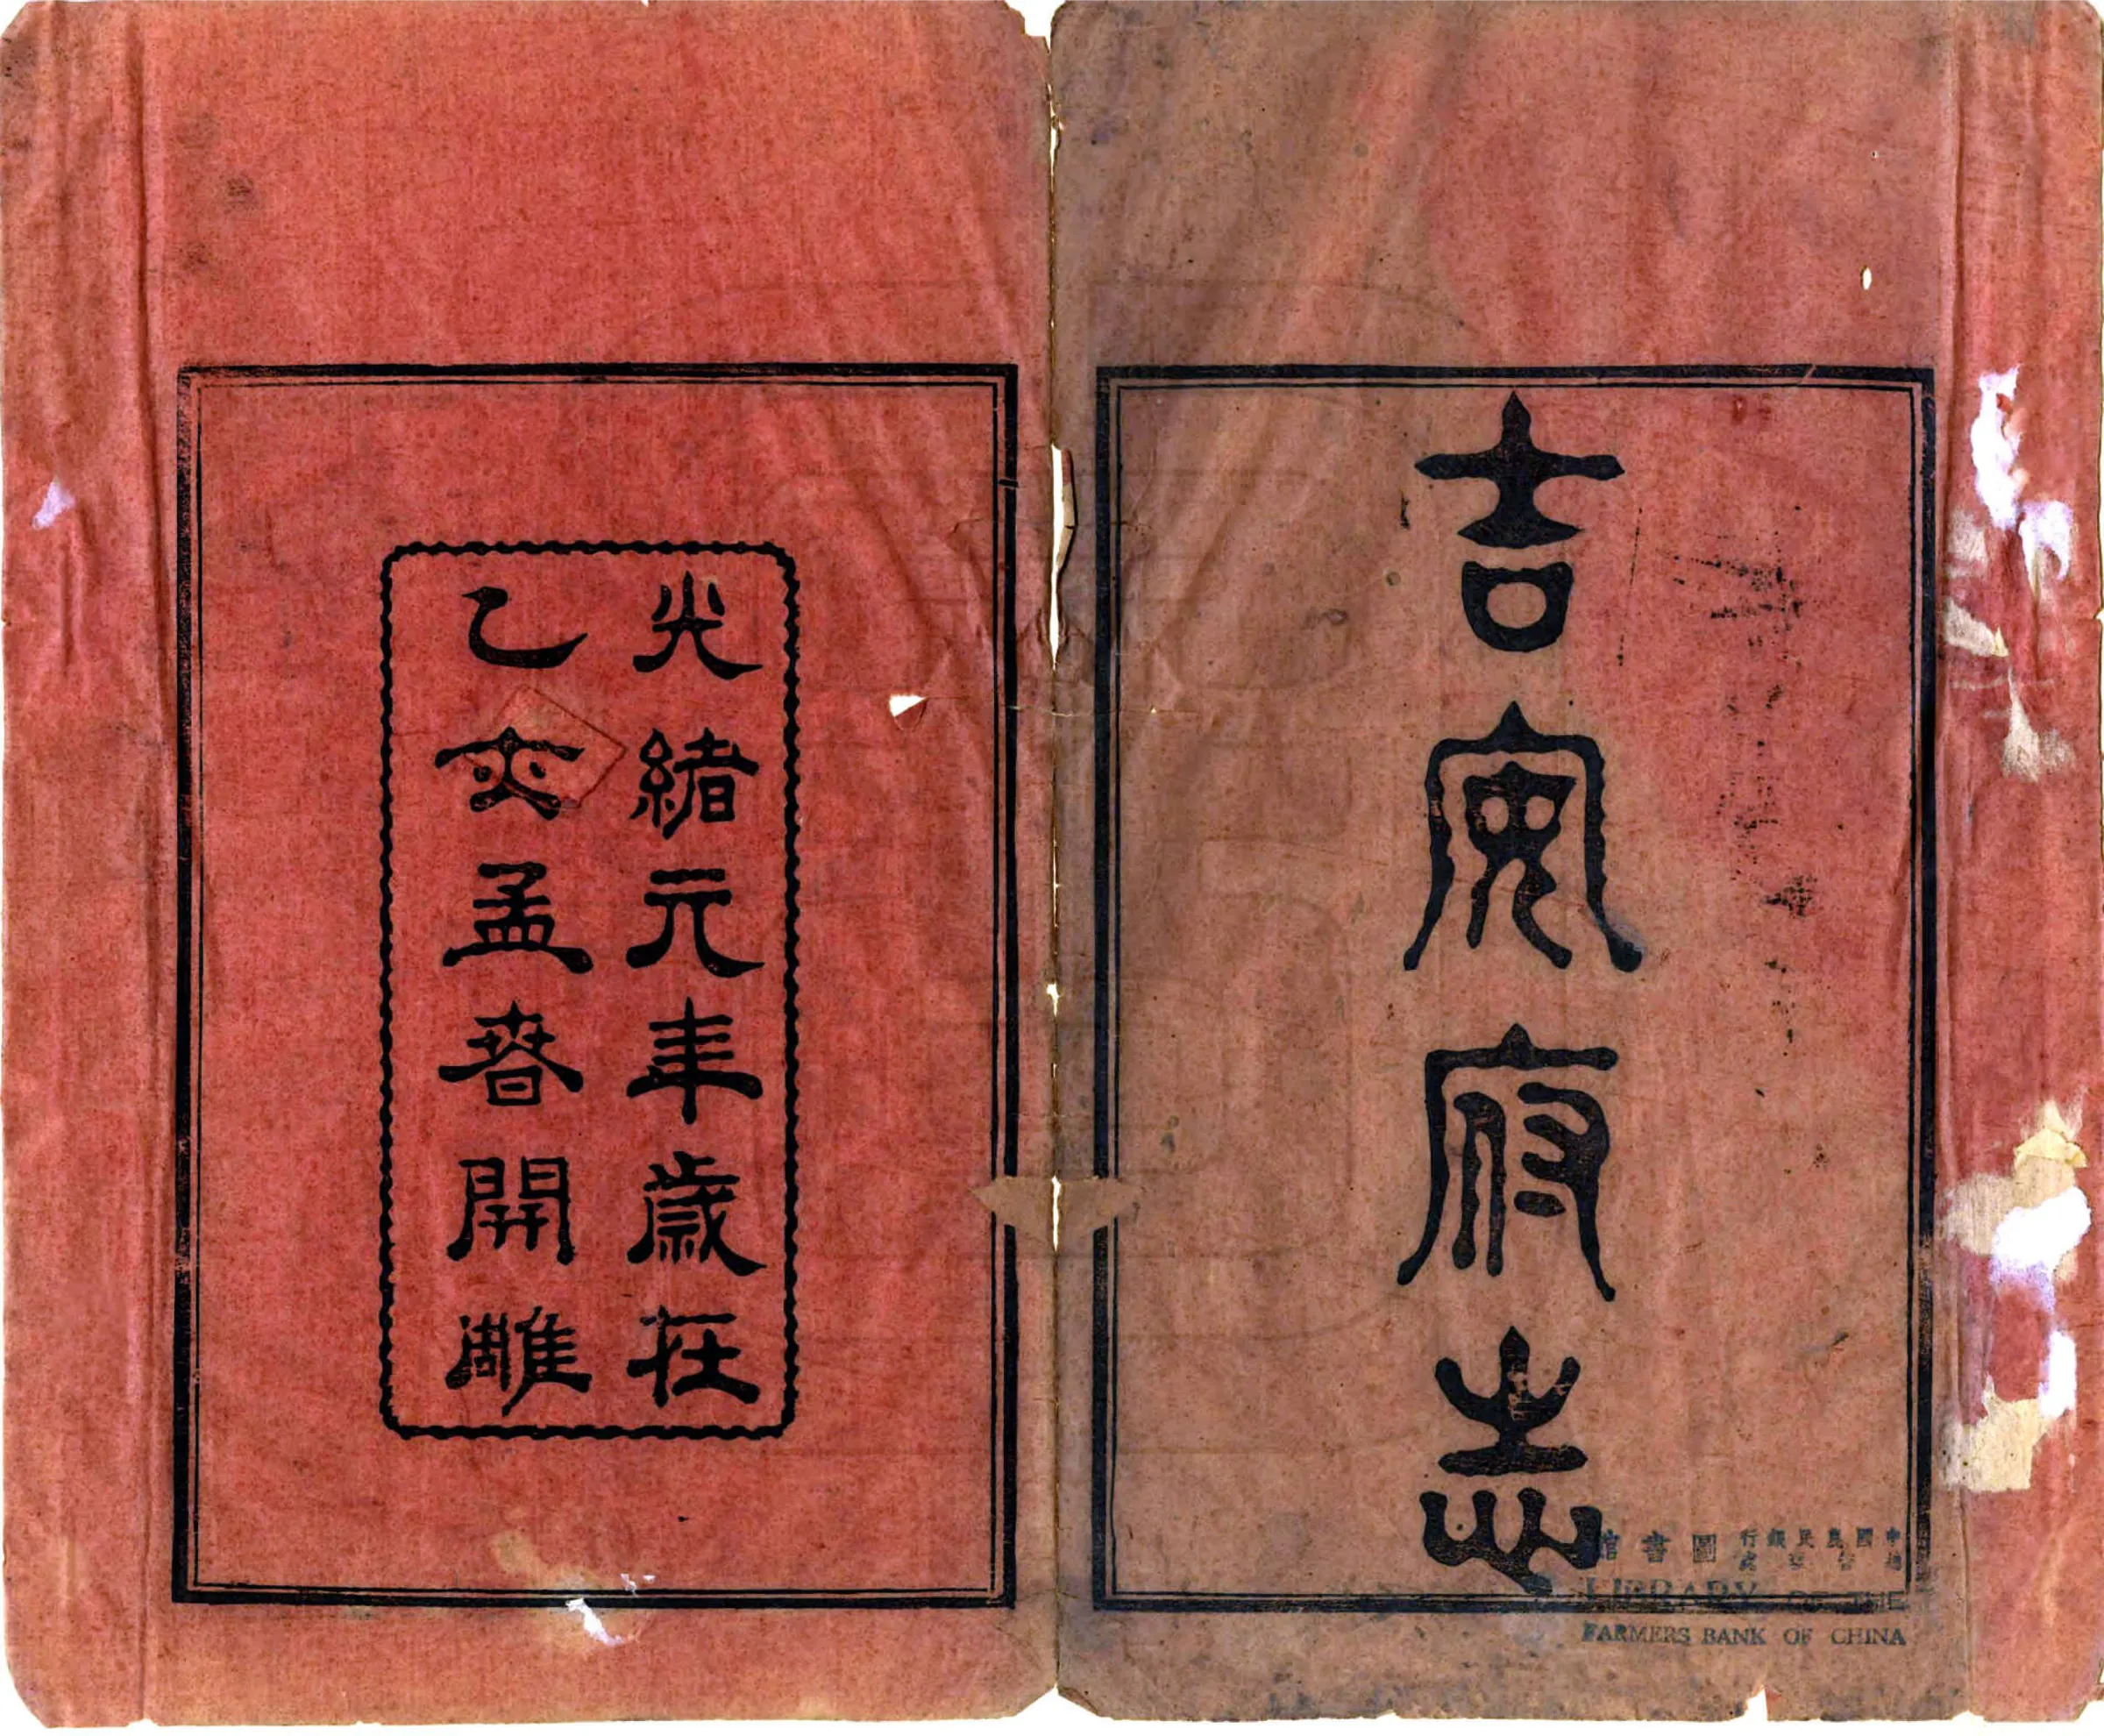 吉安府志
光緒元年歲在
乙亥孟春開雕
中國農民銀行
圖書館
LIBRARY OF THE
FARMERS BANK OF CHINA